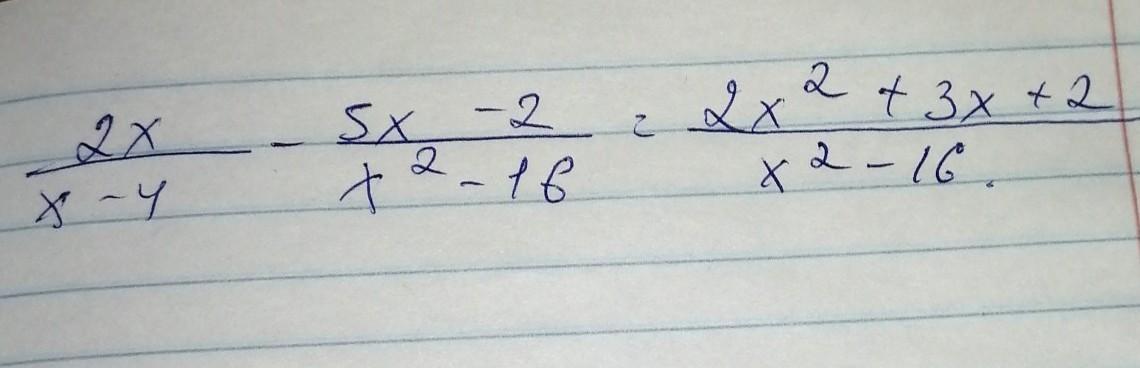 2x/(x-4) - (5x-2)/(x²-16) = (2x²+3x+2)/(x²-16).